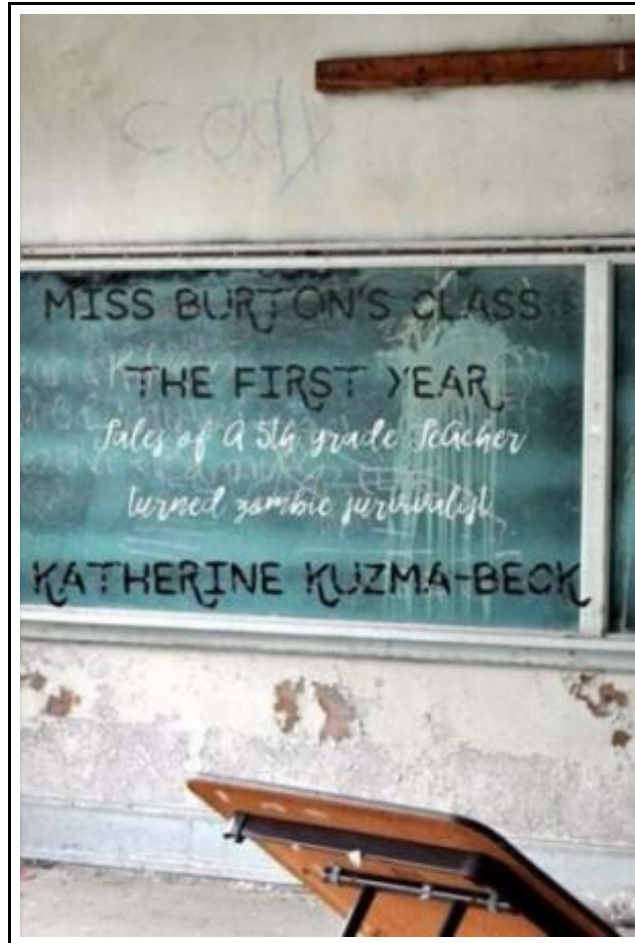 Cody
MISS BURTON'S CLASS
THE FIRST YEAR
Tales of A 5th grade TeAcher
turned zombie survivalist
KATHERINE KUZMA-BECK